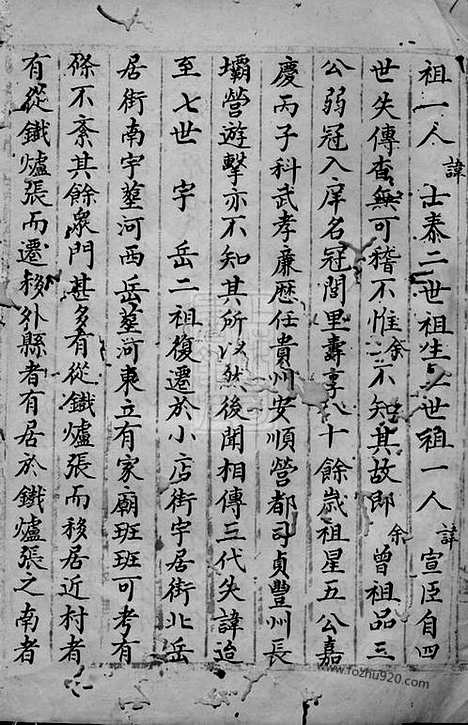 祖一人諱士泰二世祖生三世祖一人諱宣臣自四
世失傳查無可稽不惟余不知其故即余曾祖品三
公弱冠入庠名冠閭里壽享八十餘歲祖星五公嘉
慶丙子科武孝廉歷任貴州安順營都司貞豐州長
壩營遊擊亦不知其所以然後聞相傳三代失諱迨
至七世宇岳二祖復遷於小店街宇居街北岳
居街南宇塋河西岳塋河東立有家廟班班可考有
條不紊其餘衆門甚多有從鐵爐張而移居近村者
有從鐵爐張而遷移外縣者有居於鐵爐張之南者
www.fozhu920.com